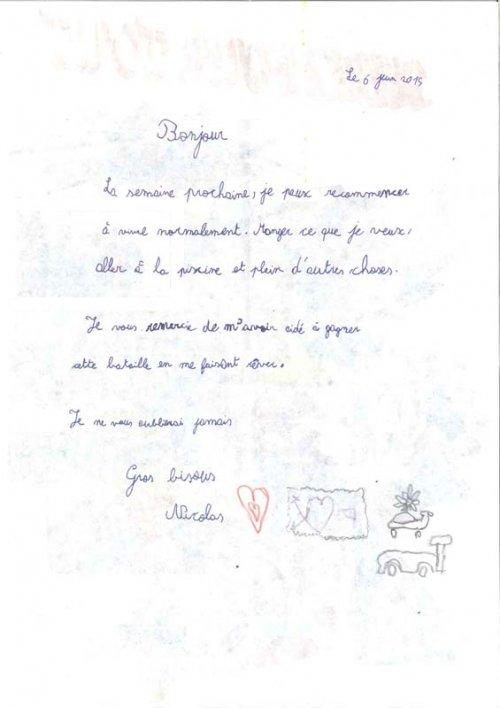 Le 6 juin 2015
Bonjour
La semaine prochaine, je peux recommencer
à vivre normalement. Manger ce que je veux,
aller à la piscine et plein d'autres choses.
Je vous remercie de m'avoir aidé à gagner
cette bataille en me faisant rêver.
Je ne vous oublierai jamais
Gros bisous
Nicolas